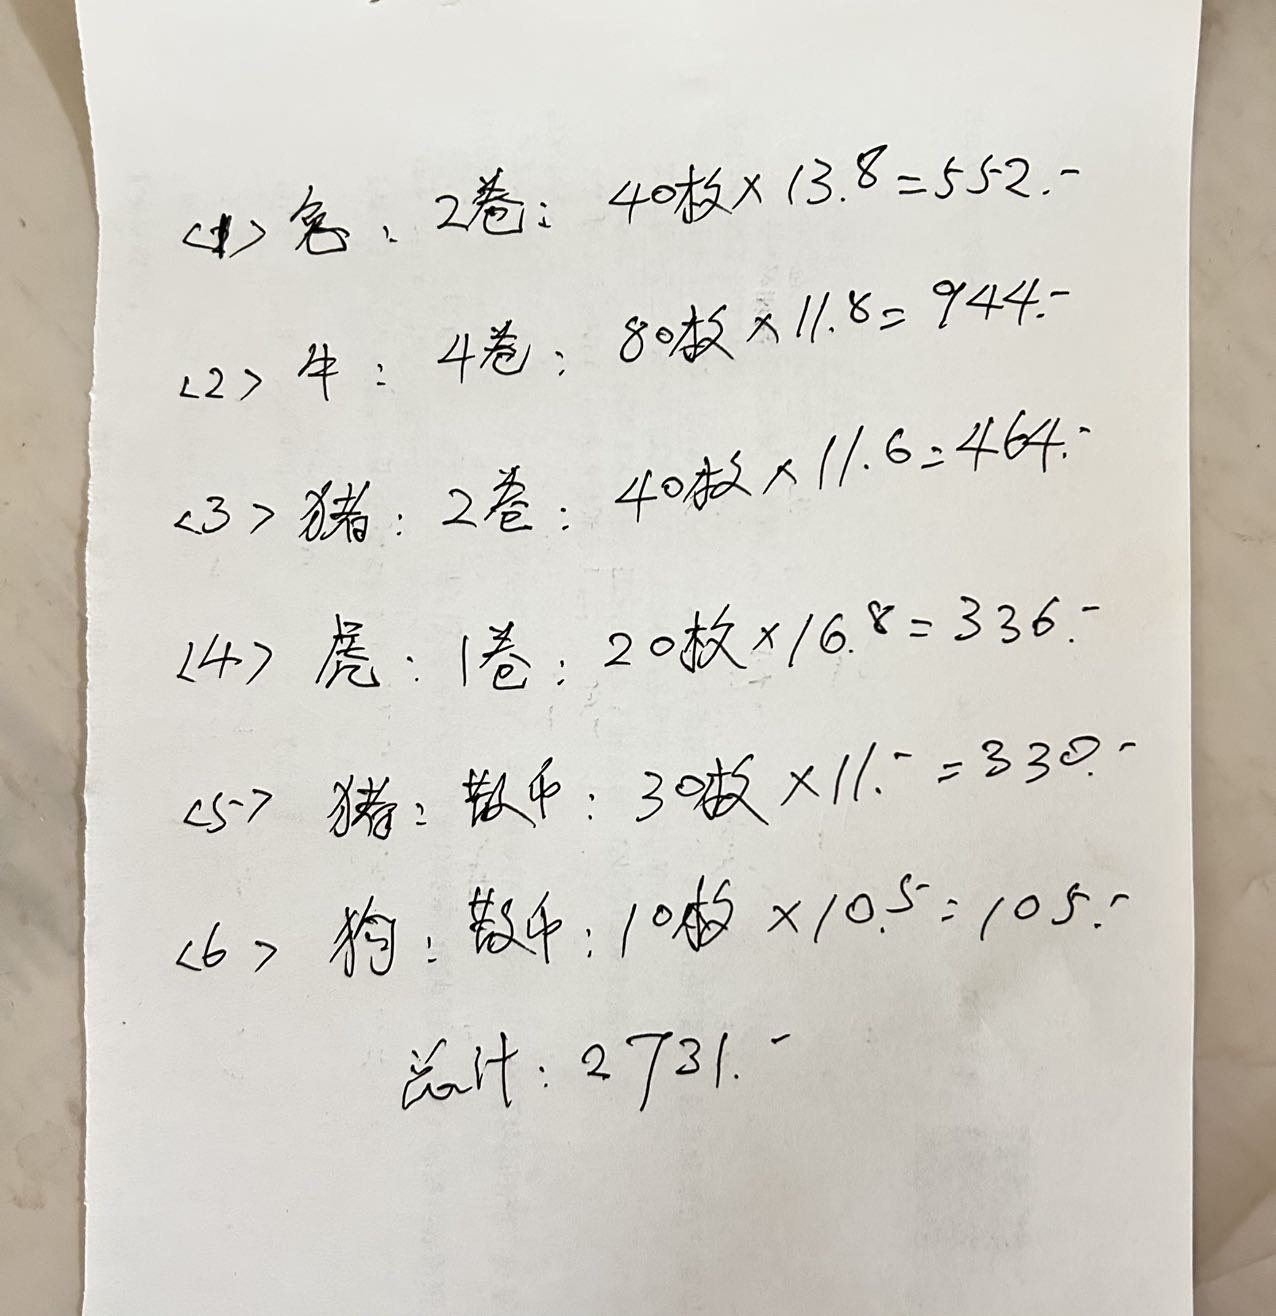 <1> 兔: 2卷: 40枚×13.8=552.-
<2> 牛: 4卷: 80枚×11.8=944.-
<3> 猪: 2卷: 40枚×11.6=464.-
<4> 虎: 1卷: 20枚×16.8=336.-
<5> 猪: 散币: 30枚×11.-=330.-
<6> 狗: 散币: 10枚×10.5=105.-
总计: 2731.-